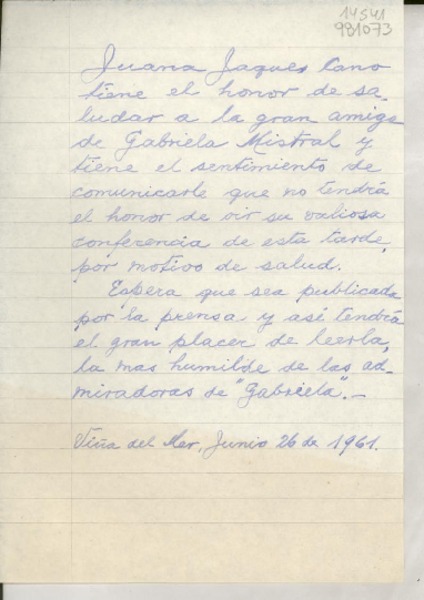 14541
981073
Juana Jaques Cano
tiene el honor de sa-
ludar a la gran amiga
de Gabriela Mistral y
tiene el sentimiento de
comunicarle que no tendrá
el honor de oir su valiosa
conferencia de esta tarde,
por motivo de salud.
Espera que sea publicada
por la prensa y así tendrá
el gran placer de leerla,
la mas humilde de las ad-
miradoras de "Gabriela".-
Viña del Mar, Junio 26 de 1961.